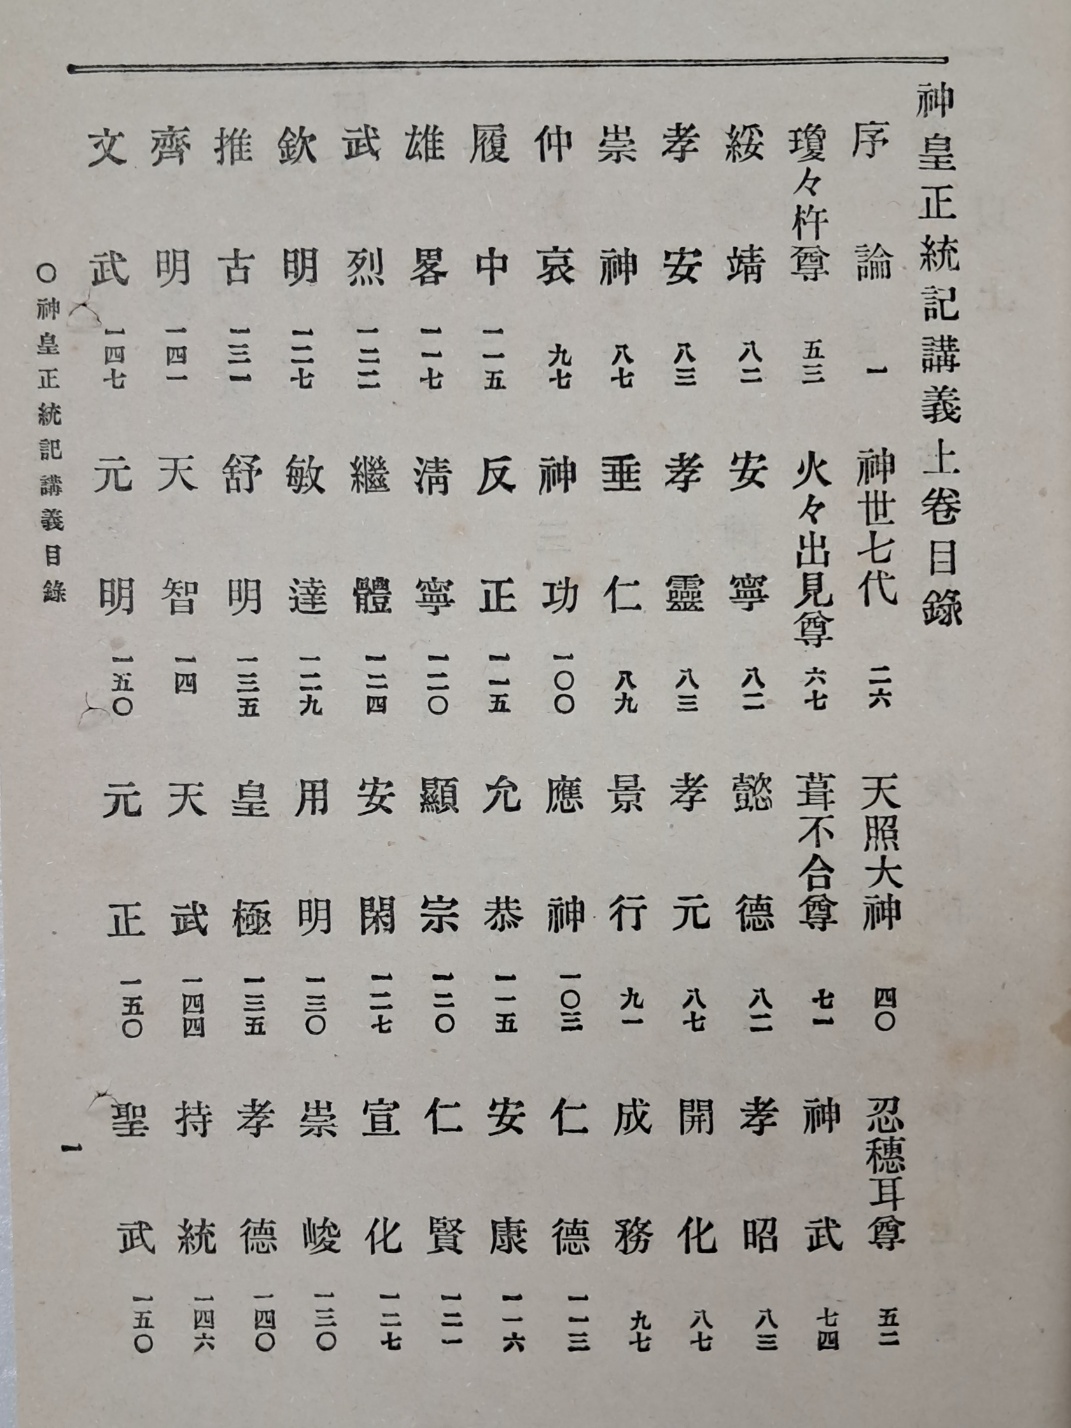 神皇正統記講義上卷目錄
序論 一 神世七代 二六 天照大神 四〇 忍穗耳尊 五二
瓊々杵尊 五三 火々出見尊 六七 葺不合尊 七一 神武 七四
綏靖 八二 安寧 八二 懿德 八二 孝昭 八三
孝安 八三 孝靈 八三 孝元 八七 開化 八七
崇神 八七 垂仁 八九 景行 九一 成務 九七
仲哀 九七 神功 一〇〇 應神 一〇三 仁德 一一三
履中 一一五 反正 一一五 允恭 一一五 安康 一一六
雄畧 一一七 淸寧 一二〇 顯宗 一二〇 仁賢 一二一
武烈 一二二 繼體 一二四 安閑 一二七 宣化 一二七
欽明 一二七 敏達 一二九 用明 一三〇 崇峻 一三〇
推古 一三一 舒明 一三五 皇極 一三五 孝德 一四〇
齊明 一四一 天智 一四 天武 一四四 持統 一四六
文武 一四七 元明 一五〇 元正 一五〇 聖武 一五〇
〇神皇正統記講義目錄 一